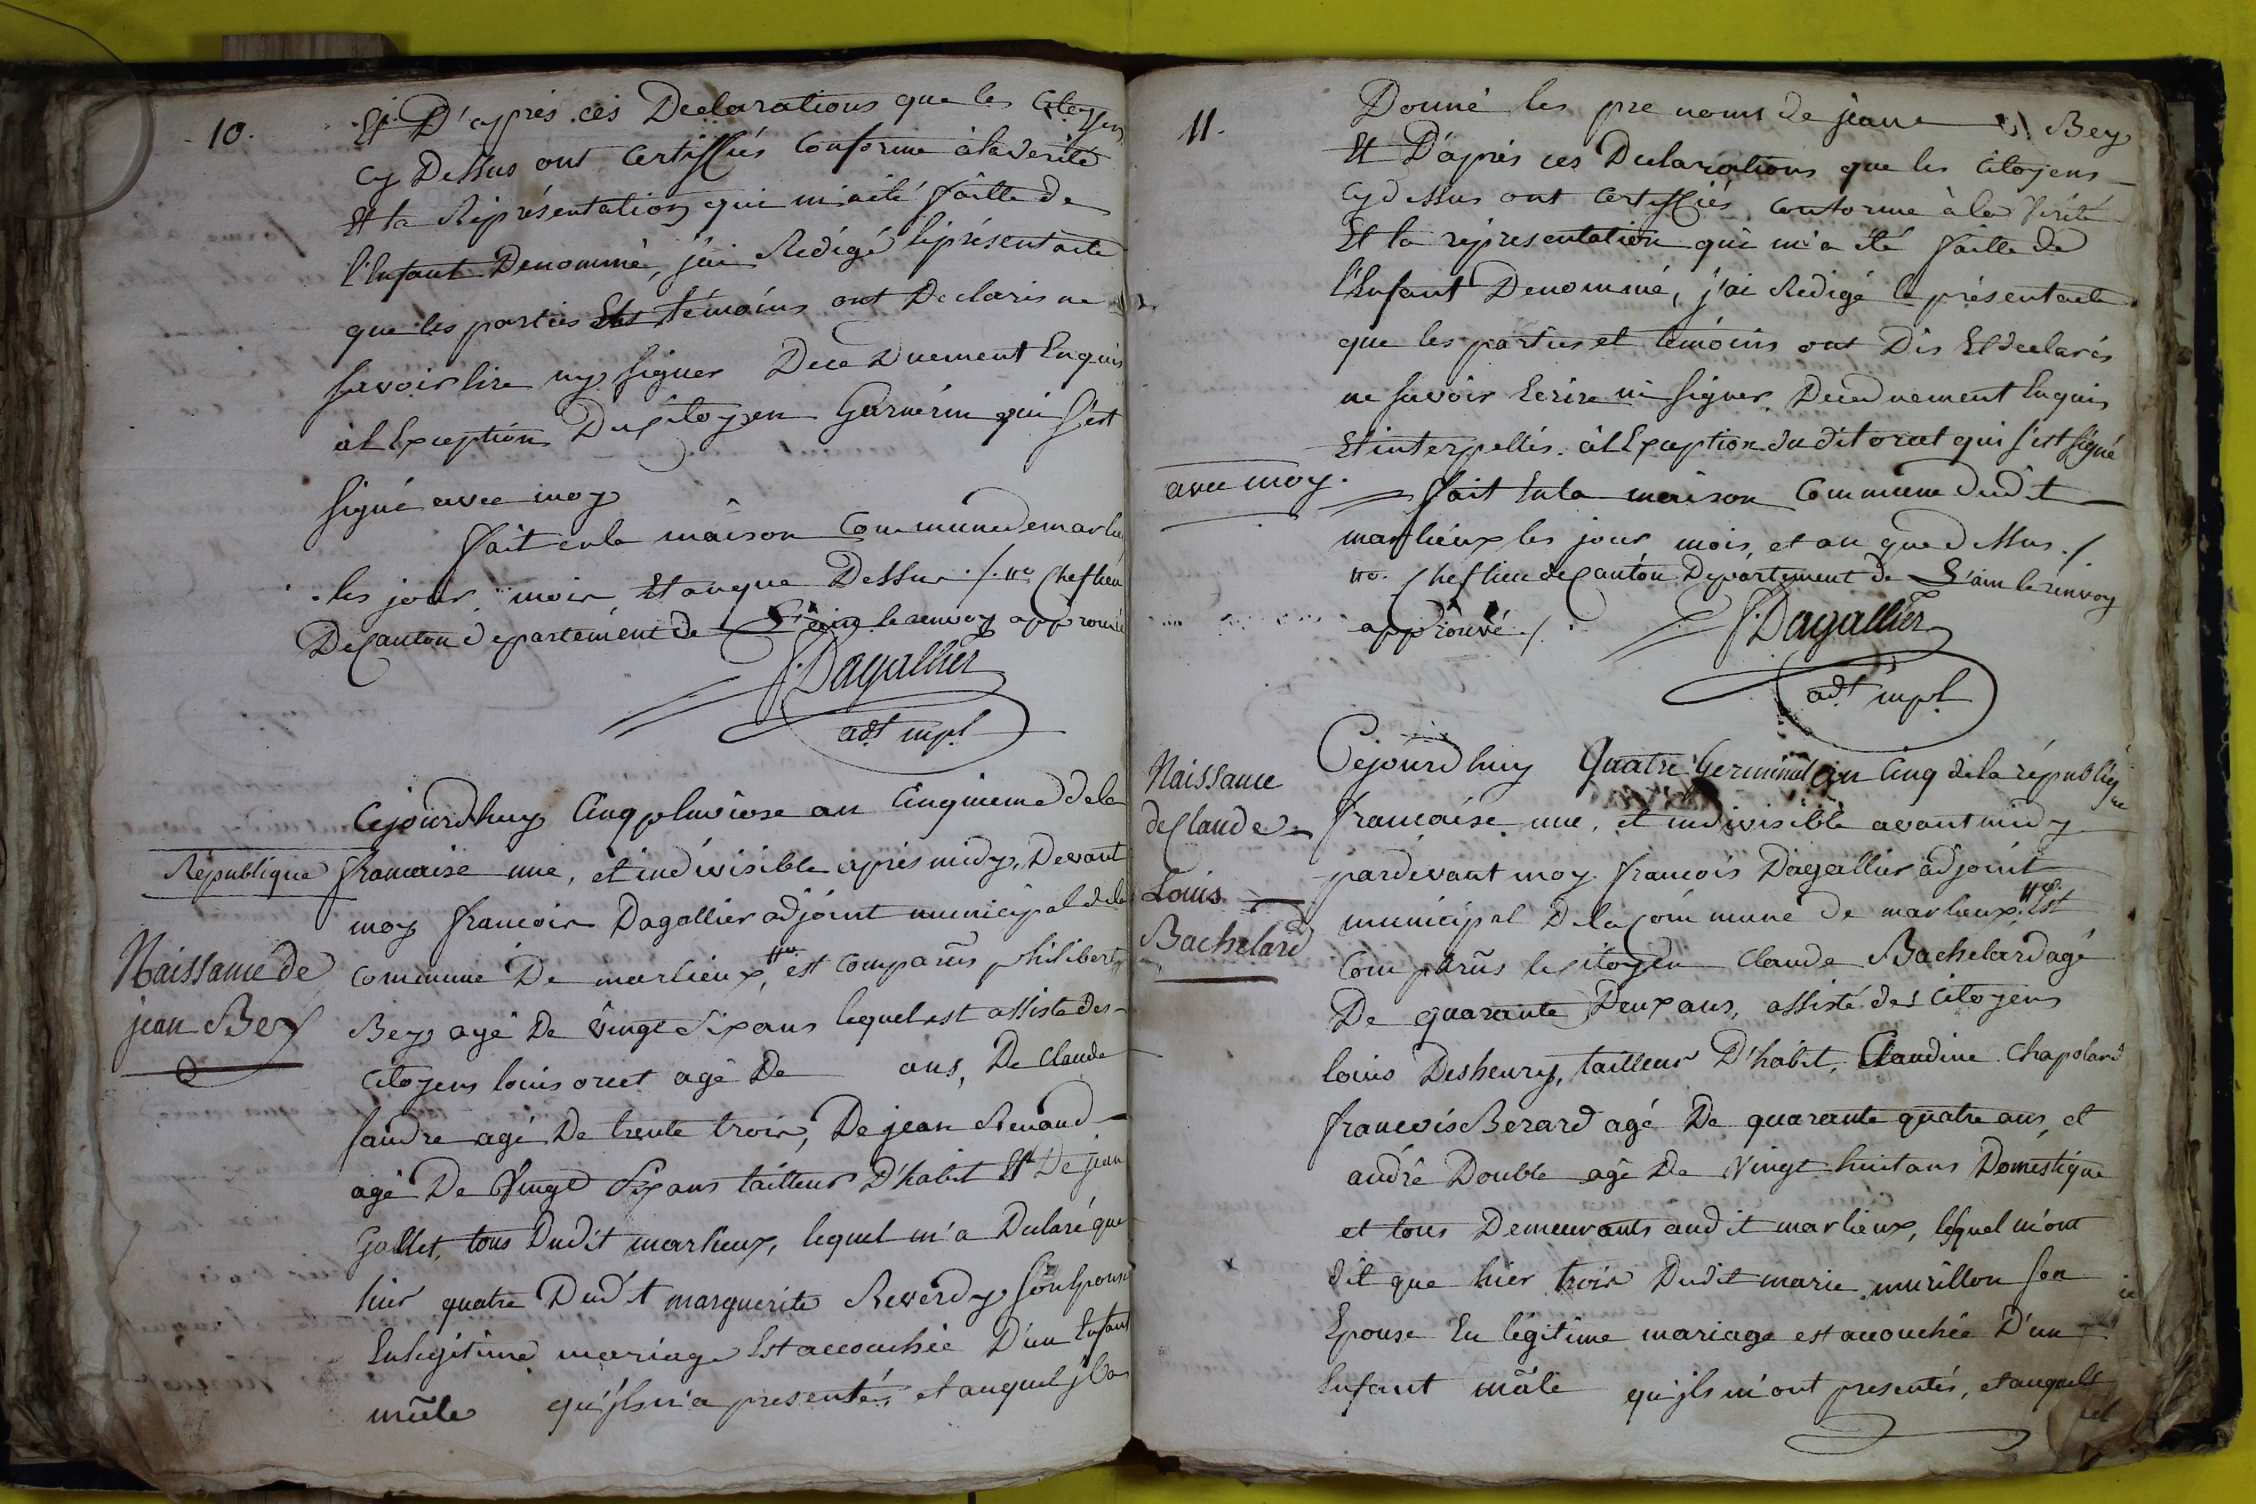 10.
Et D'après ces Declarations que les Citoyens
cy Dessus ont certiffiés conforme à la vérité
Et la Réprésentation qui m'a été faitte de
l'Enfant Denommé, j'ai Redigé le présent acte
que les parties Et témoins ont Declarés ne
savoir lire ny signer De ce Duement Enquis
à l'Exception Du Citoyen Garnerin qui s'est
signé avec moy
fait en la maison Commune de marlieux
les jour mois Et an que Dessus ./. Chef lieu
De Canton département de L'ain le renvoy approuvé
Dagallier
adt mpl
Cejourdhuy Cinq pluviose an Cinquieme de la
République francaise une, et indivisible après midy, Devant
moy francois Dagallier adjoint municipal de la
Naissance de
jean Bey
commune De marlieux, est comparus philibert
Bey agé De vingt Six ans lequel est assisté des
Citoyens louis oret agé De ans, De Claude
fandre agé De trente trois, De jean Renaud
agé De Vingt Six ans tailleur D'habit Et De jean
Gallet, tous Dudit marlieux, lequel m'a Declaré que
hier quatre Dudit marguerite Reverdy son Epouse
En légitime mariage Est accouchée D'un Enfant
mâle qu'il m'a presentés, et auquel il a
11.
Donné les pre noms de jean Bey
Et D'après ces Declarations que les Citoyens
cy dessus ont certiffiés conforme à la vérité
Et la répresentation qui m'a été faitte de
l'Enfant Denommé, j'ai Redigé le présent acte
que les parties et témoins ont Dis Et declarés
ne savoir Ecrire ni signer, De ce Duement Enquis
Et interpellés. à l'Exception du dit orcet qui s'est signé
avec moy. fait En la maison Commune dudit
marlieux les jour mois, et an que dessus ./
chef lieu de Canton Departement de L'ain le renvoy
approuvé ./.
Dagallier
adt mpl
Naissance
de Claude
Louis
Bachelard
Cejourdhuy Quatre Germinal an Cinq de la république
francaise une, et indivisible avant midy
pardevant moy francois Dagallier adjoint
municipal De la Commune de marlieux Est
Comparus le citoyen Claude Bachelard agé
De quarante Deux ans, assisté des Citoyens
louis Desheury, tailleur D'habit, Claudine Chapolard
francois Berard agé De quarante quatre ans, et
andré Double agé De Vingt huit ans Domestique
et tous Demeurants audit marlieux, lequel m'ont
dit que hier trois Dudit marie murillon son
Epouse En légitime mariage est accouchée D'un
Enfant mâle qu'ils m'ont presentés, et auquels